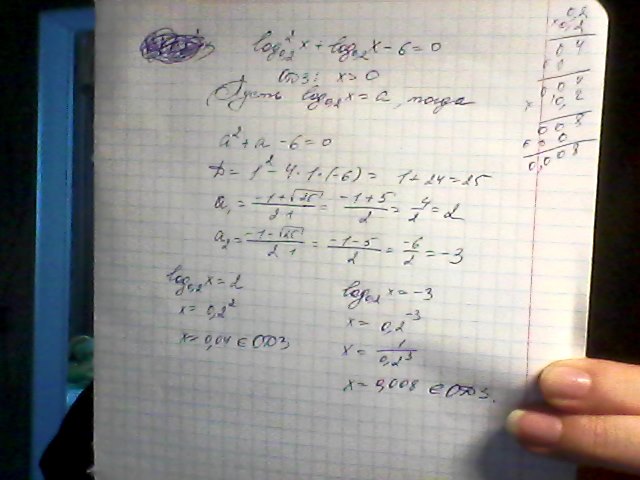 log²₀,₂x + log₀,₂x - 6 = 0
ОДЗ: x > 0
Пусть log₀,₂x = a, тогда
a² + a - 6 = 0
D = 1² - 4·1·(-6) = 1 + 24 = 25
a₁ = (-1+√25)/(2·1) = (-1+5)/2 = 4/2 = 2
a₂ = (-1-√25)/(2·1) = (-1-5)/2 = -6/2 = -3
log₀,₂x = 2
x = 0,2²
x = 0,04 ∈ ОДЗ
log₀,₂x = -3
x = 0,2⁻³
x = 1/0,2³
x = 0,008 ∈ ОДЗ.
0,2
× 0,2
0 4
0 0
0 0 4
× 0, 2
0 0 8
0 0 0
0,008